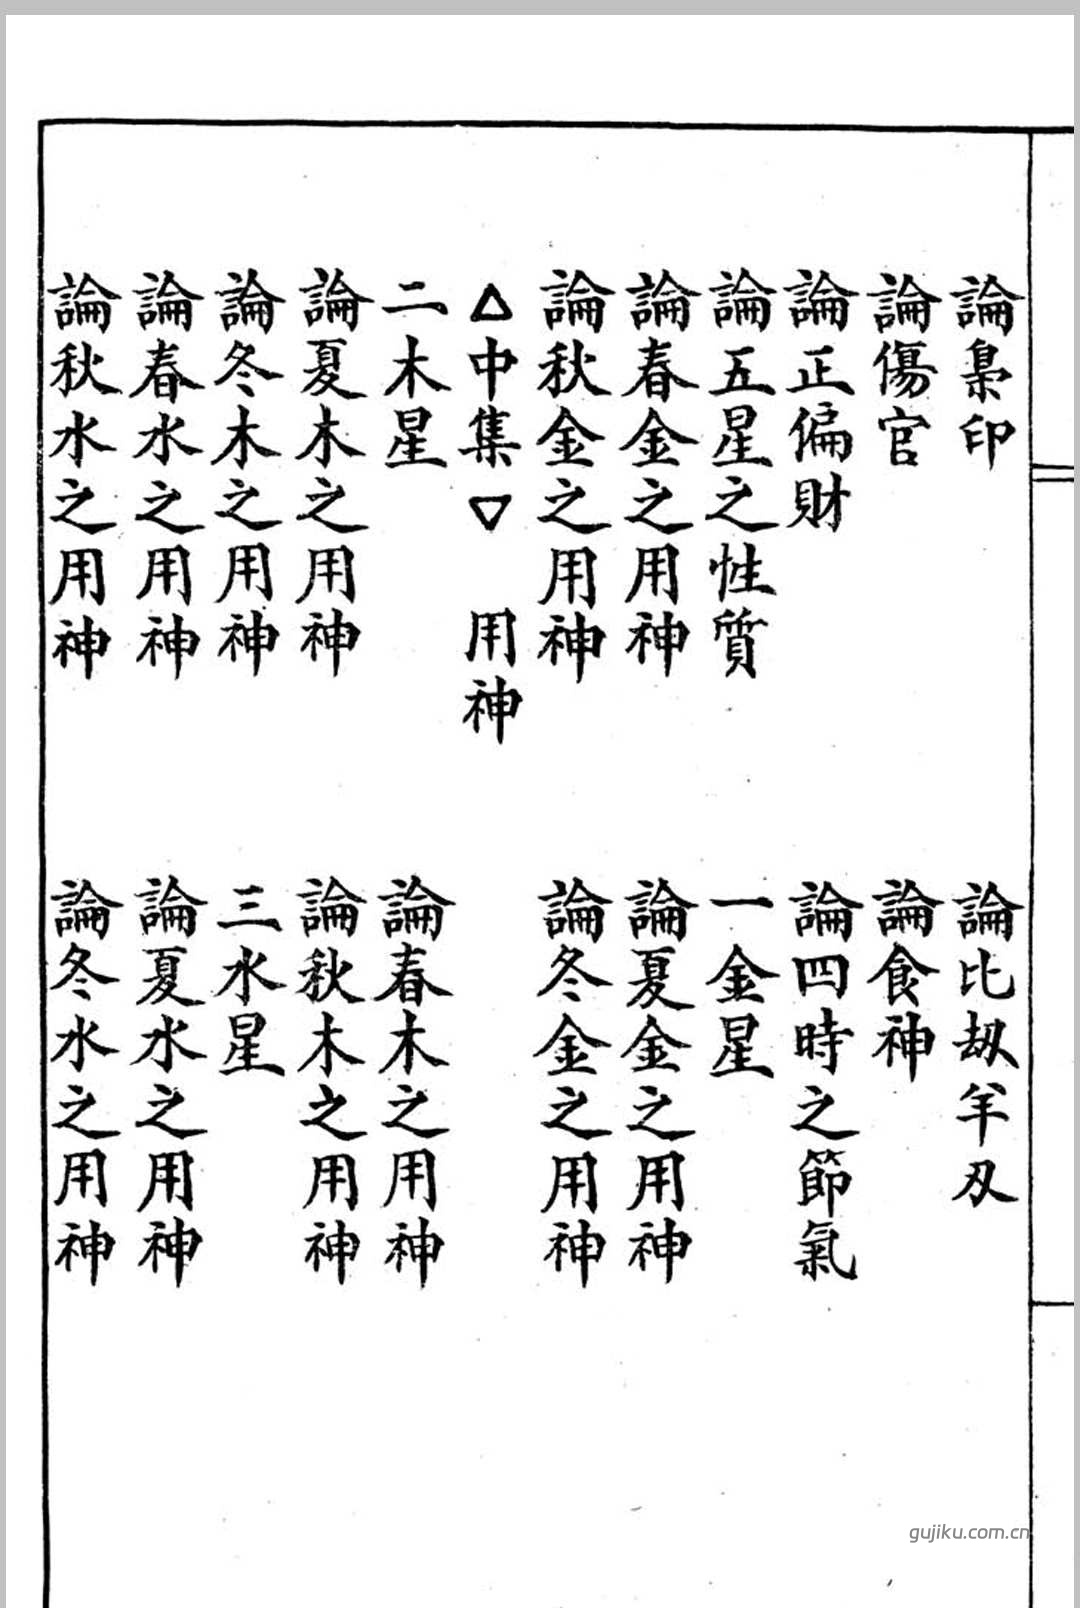 論梟印　論比刼羊刃
論傷官　論食神
論正偏財　論四時之節氣
論五星之性質　一金星
論春金之用神　論夏金之用神
論秋金之用神　論冬金之用神
△中集▽　用神
二木星　論春木之用神
論夏木之用神　論秋木之用神
論冬木之用神　三水星
論春水之用神　論夏水之用神
論秋水之用神　論冬水之用神
gujiku.com.cn